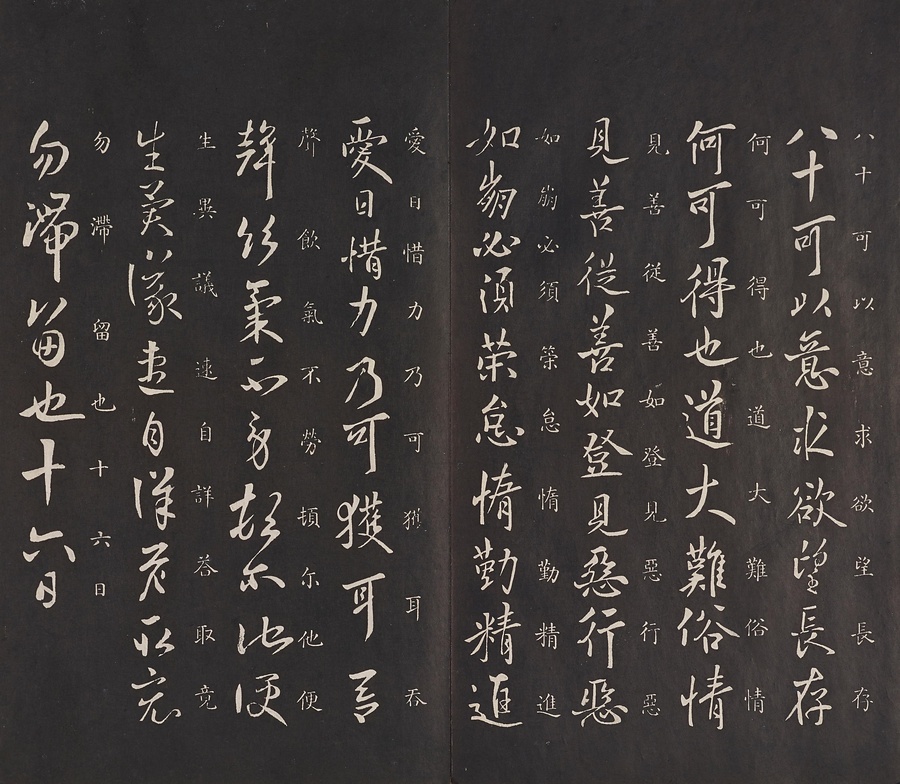 八十可以意求欲望長存
八十可以意求欲望長存
何可得也道大難俗情
何可得也道大難俗情
見善從善如登見惡行惡
見善從善如登見惡行惡
如崩必須築怠惰勤精進
如崩必須榮怠惰勤精進
愛日惜力乃可獲耳吞
愛日惜力乃可獲耳吞
聲飲氣不勞頓尓他便
聲飲氣不勞頓尓他便
生異議速自詳咎取竟
生異議速自詳取
勿滯留也十六日
勿滯留也十六日